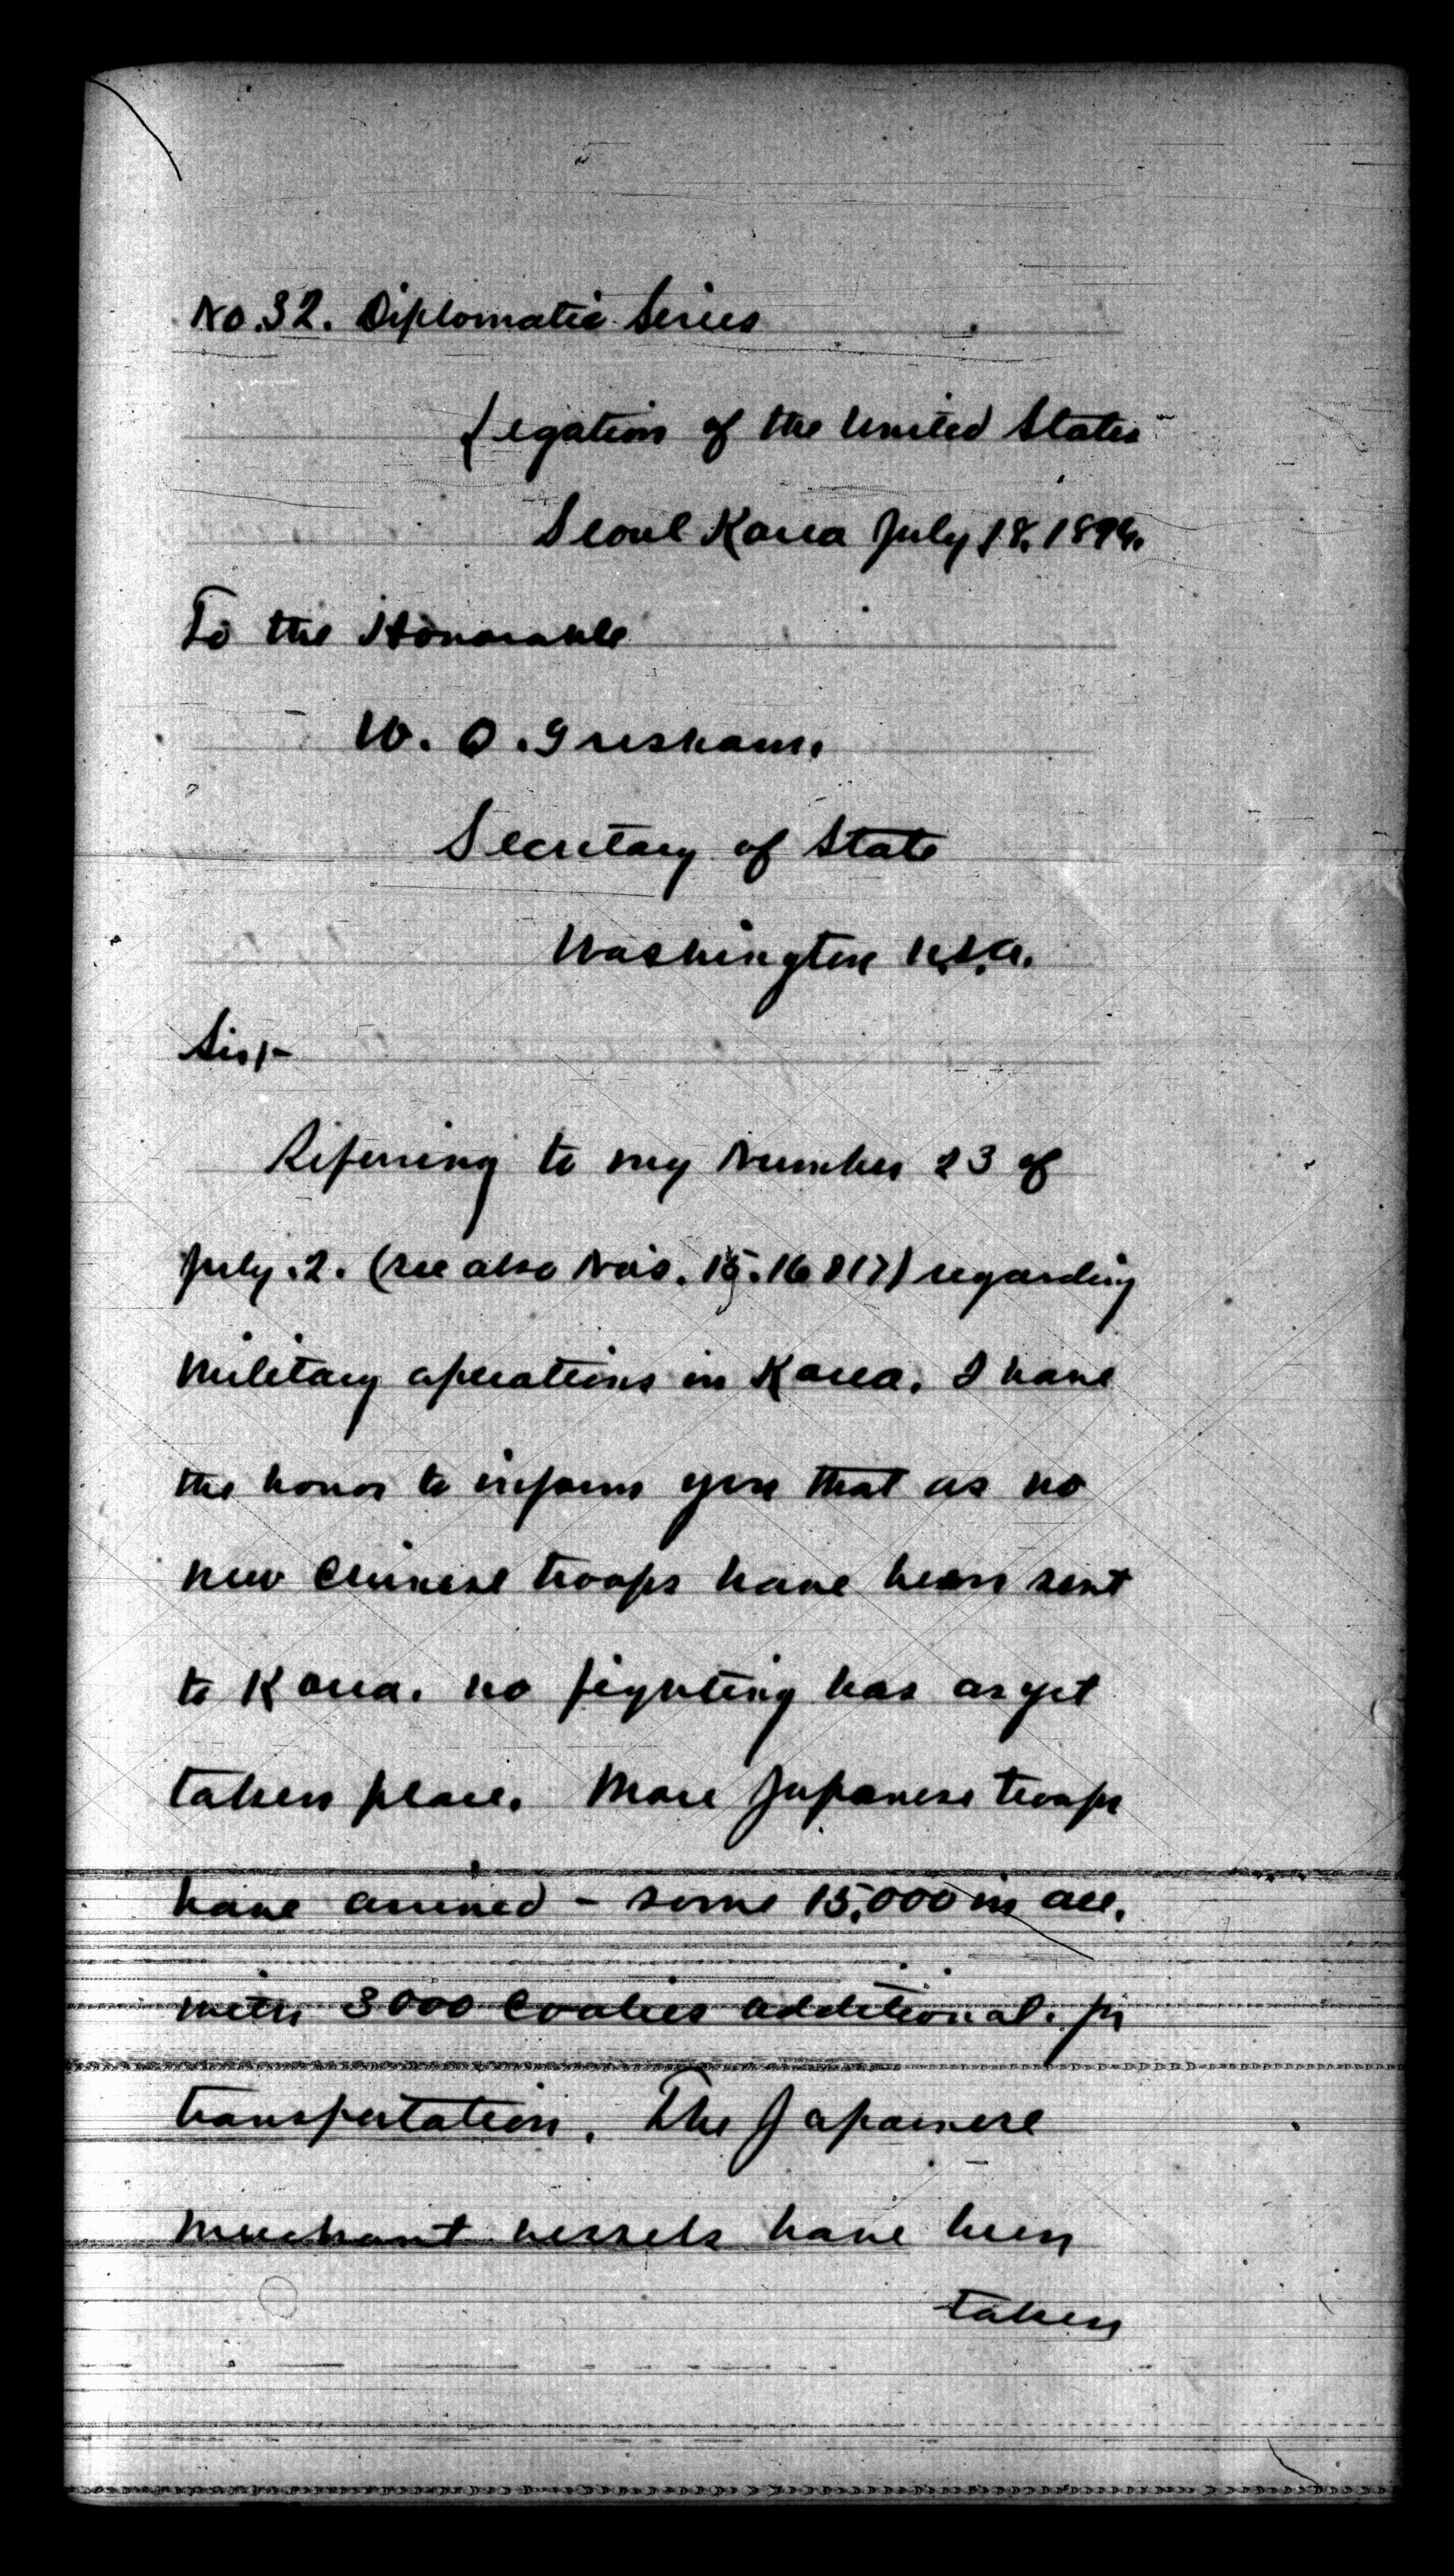 No. 32. Diplomatic Series
Legation of the United States
Seoul Korea July 18, 1894.
To the Honorable
W. Q. Gresham,
Secretary of State
Washington U.S.A.
Sir,-
Referring to my Number 23 of
July. 2. (see also No's. 15. 16 & 17) regarding
military operations in Korea. I have
the honor to inform you that as no
new Chinese troops have been sent
to Korea. no fighting has as yet
taken place. More Japanese troops
have arrived - some 15,000 in all,
with 3000 Coolies additional. for
transportation. The Japanese
merchant vessels have been
taken